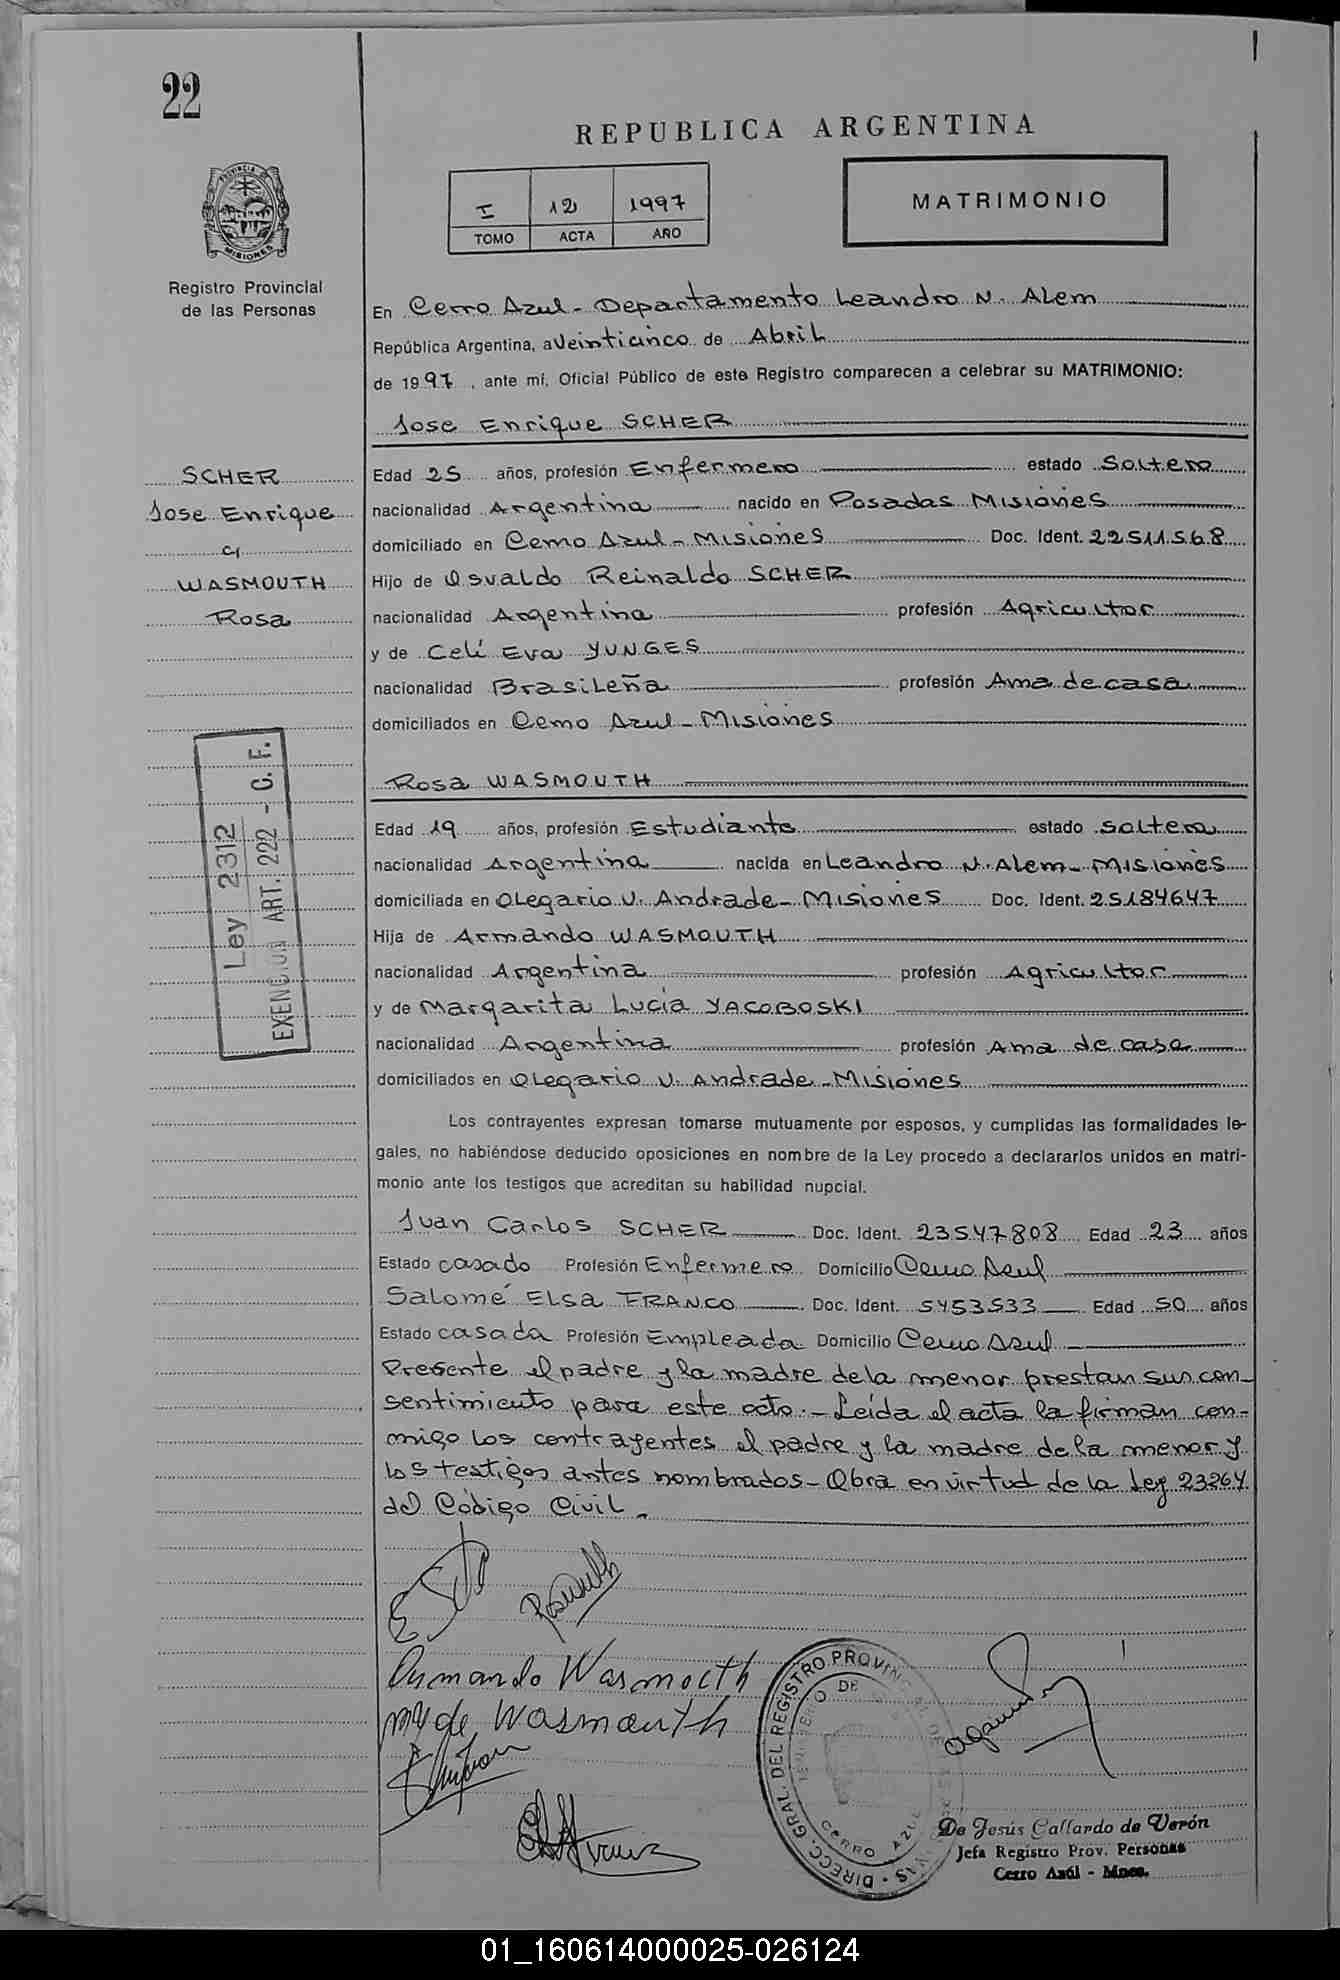 22
REPUBLICA ARGENTINA
PROVINCIA DE
MISIONES
Registro Provincial
de las Personas
I 12 1997
TOMO ACTA AÑO
MATRIMONIO
En Cerro Azul - Departamento Leandro N. Alem
República Argentina, a Veinticinco de Abril
de 1997, ante mí, Oficial Público de este Registro comparecen a celebrar su MATRIMONIO:
Jose Enrique SCHER
SCHER
Jose Enrique
c/
WASMOUTH
Rosa
Edad 25 años, profesión Enfermero estado Soltero
nacionalidad Argentina nacido en Posadas Misiones
domiciliado en Cerro Azul - Misiones Doc. Ident. 22511568
Hijo de Osvaldo Reinaldo SCHER
nacionalidad Argentina profesión Agricultor
y de Celi Eva YUNGES
nacionalidad Brasileña profesión Ama de casa
domiciliados en Cerro Azul - Misiones
Ley 2312
EXENCION ART. 222 - C. F.
Rosa WASMOUTH
Edad 19 años, profesión Estudiante estado soltera
nacionalidad Argentina nacida en Leandro N. Alem - Misiones
domiciliada en Olegario V. Andrade - Misiones Doc. Ident. 25184647
Hija de Armando WASMOUTH
nacionalidad Argentina profesión Agricultor
y de Margarita Lucia YACOBOSKI
nacionalidad Argentina profesión Ama de casa
domiciliados en Olegario V. Andrade - Misiones
Los contrayentes expresan tomarse mutuamente por esposos, y cumplidas las formalidades le-
gales, no habiéndose deducido oposiciones en nombre de la Ley procedo a declararlos unidos en matri-
monio ante los testigos que acreditan su habilidad nupcial.
Juan Carlos SCHER Doc. Ident. 23547808 Edad 23 años
Estado casado Profesión Enfermero Domicilio Cerro Azul
Salomé Elsa FRANCO Doc. Ident. 5453533 Edad 50 años
Estado casada Profesión Empleada Domicilio Cerro Azul
Presente el padre y la madre de la menor prestan sus con-
sentimiento para este acto. - Leída el acta la firman con-
migo los contrayentes el padre y la madre de la menor y
los testigos antes nombrados - Obra en virtud de la Ley 23264
del Código Civil.
Armando Wasmocth
MY de Wasmauth
DIRECC. GRAL. DEL REGISTRO PROVINCIAL DE
CERRO AZUL
De Jesús Gallardo de Verón
Jefa Registro Prov. Personas
Cerro Azúl - Mnes.
01_160614000025-026124